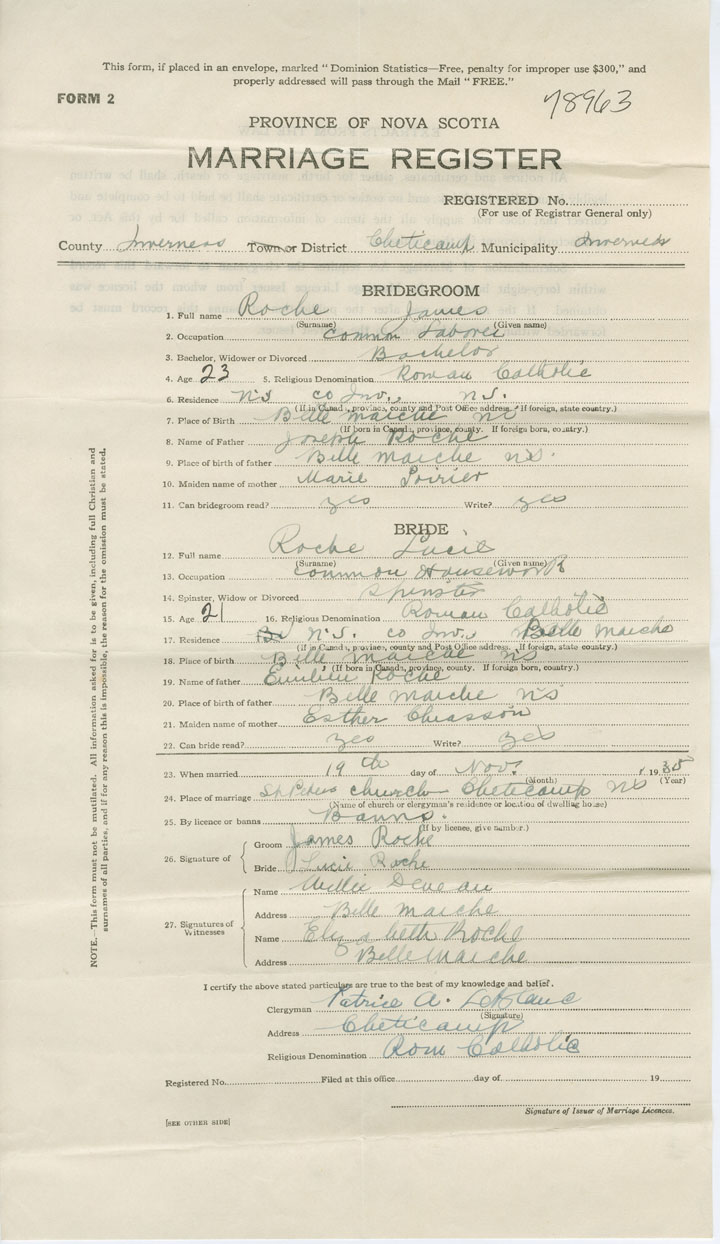 This form, if placed in an envelope, marked "Dominion Statistics—Free, penalty for improper use $300," and
properly addressed will pass through the Mail "FREE."
FORM 2
78963
PROVINCE OF NOVA SCOTIA
MARRIAGE REGISTER
REGISTERED No.
(For use of Registrar General only)
County Inverness Town or District Cheticamp Municipality Inverness
BRIDEGROOM
1. Full name Roche James
(Surname) (Given name)
2. Occupation Common Laborer
3. Bachelor, Widower or Divorced Bachelor
4. Age 23 5. Religious Denomination Roman Catholic
6. Residence N.S co Inv., N.S.
(If in Canada, province, county and Post Office address. If foreign, state country.)
7. Place of Birth Belle Marche NS
(If born in Canada, province, county. If foreign born, country.)
8. Name of Father Joseph Roche
9. Place of birth of father Belle Marche N.S.
10. Maiden name of mother Marie Poirier
11. Can bridegroom read? yes Write? yes
BRIDE
12. Full name Roche Lucie
(Surname) (Given name)
13. Occupation Common Housework
14. Spinster, Widow or Divorced Spinster
15. Age 21 16. Religious Denomination Roman Catholic
17. Residence N.S. co Inv., Belle Marche
(If in Canada, province, county and Post Office address. If foreign, state country.)
18. Place of birth Belle Marche NS
(If born in Canada, province, county. If foreign born, country.)
19. Name of father Emilien Roche
20. Place of birth of father Belle Marche NS
21. Maiden name of mother Esther Chiasson
22. Can bride read? yes Write? yes
23. When married 19th day of Nov. 1935
(Month) (Year)
24. Place of marriage St Peters church Cheticamp NS
(Name of church or clergyman's residence or location of dwelling house)
25. By licence or banns Banns.
(If by licence, give number.)
26. Signature of
Groom James Roche
Bride Lucie Roche
27. Signatures of Witnesses
Name Willie Deveau
Address Belle Marche
Name Elizabeth Roche
Address Belle Marche
I certify the above stated particulars are true to the best of my knowledge and belief.
Clergyman Patrice A. LeBlanc
(Signature)
Address Cheticamp
Religious Denomination Rom Catholic
Registered No. Filed at this office day of 19
Signature of Issuer of Marriage Licences.
[SEE OTHER SIDE]
NOTE.—This form must not be mutilated. All information asked for is to be given, including full Christian and
surnames of all parties, and if for any reason this is impossible, the reason for the omission must be stated.